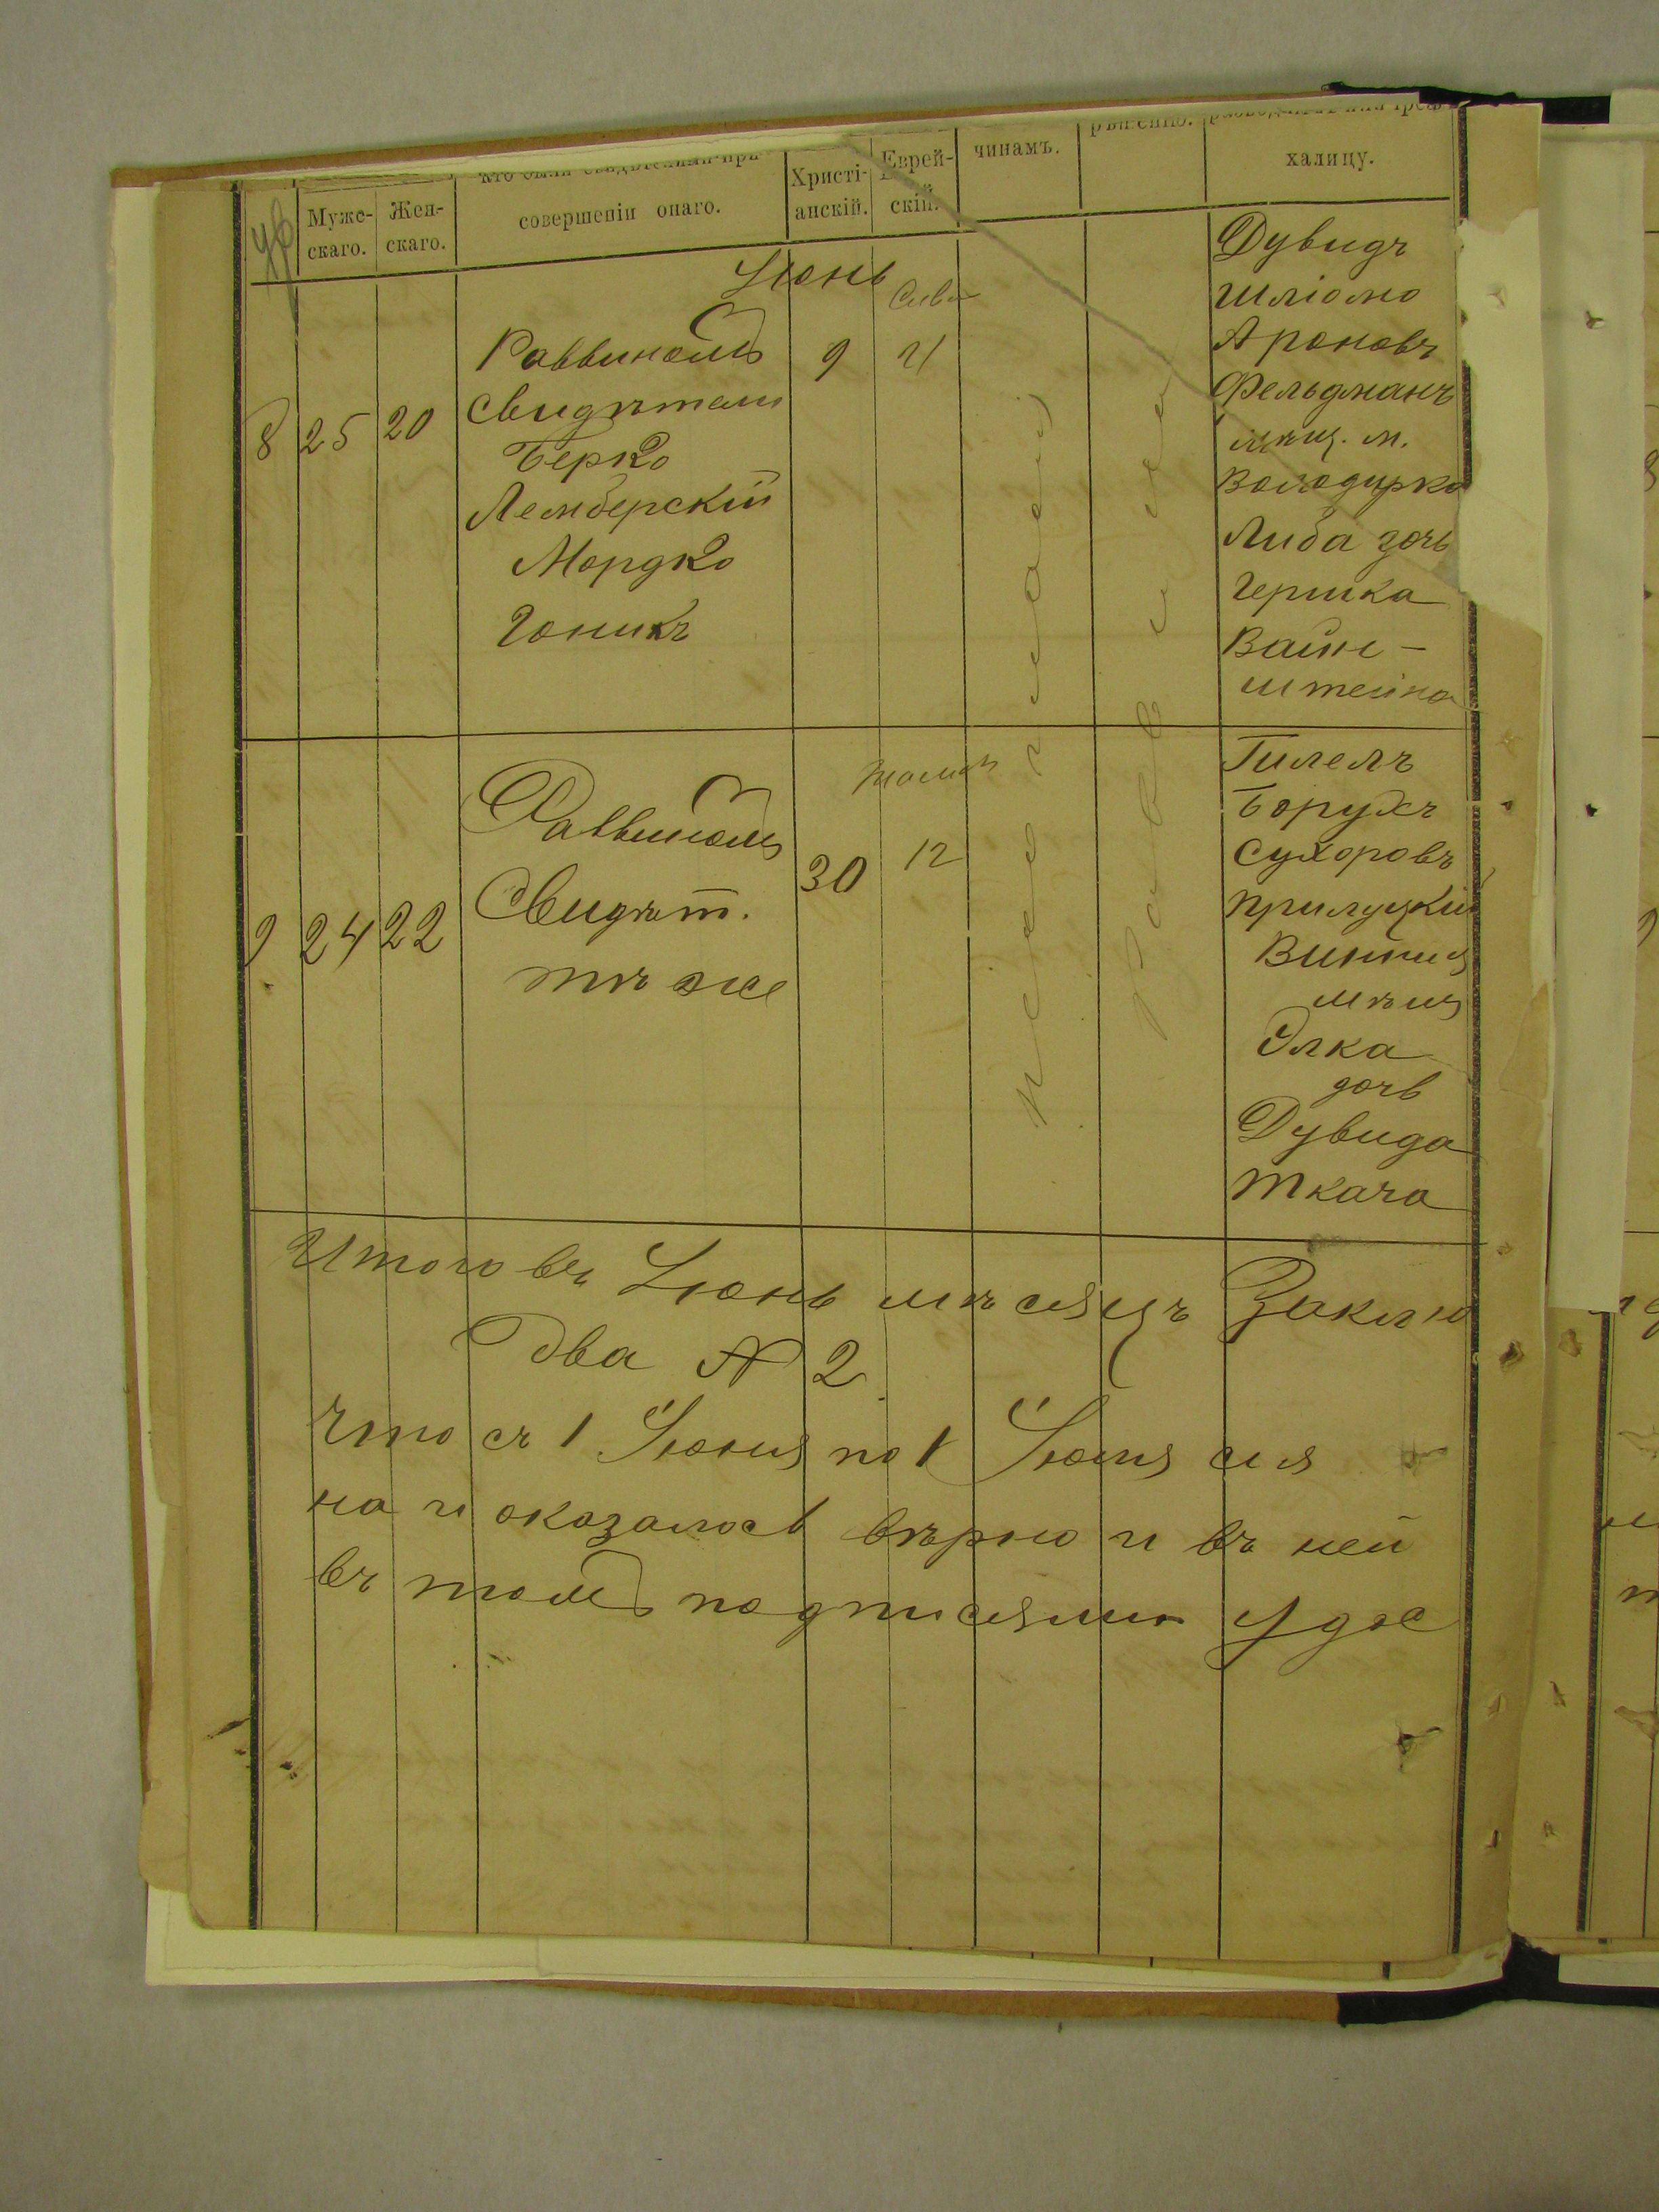 Муже-
скаго.
Жен-
скаго.
совершеніи онаго.
Христі-
анскій.
Еврей-
скій.
чинамъ.
халицу.
Іюнь
8
25
20
Раввиномъ
Свидѣтели
Берко
Лемберскій
Мордко
Гоникъ
9
Сиван
21
Дувидъ
Шліомо
Ароновъ
Фельдманъ
мѣщ. м.
Володарка
Либа дочь
Гершка
Вайн-
штейна
9
24
22
Раввиномъ
Свидѣт.
тѣ же
30
12
Гилелъ
Борухъ
Сухоровъ
Прилуцкій
Винниц
мѣщ
Элка
дочь
Дувида
Ткача
Итого въ Іюнь мѣсяцъ Заклю
Два № 2
Что съ 1 Іюня по 1 Іюля сія
на и оказалось вѣрно и въ ней
въ томъ подписями удос